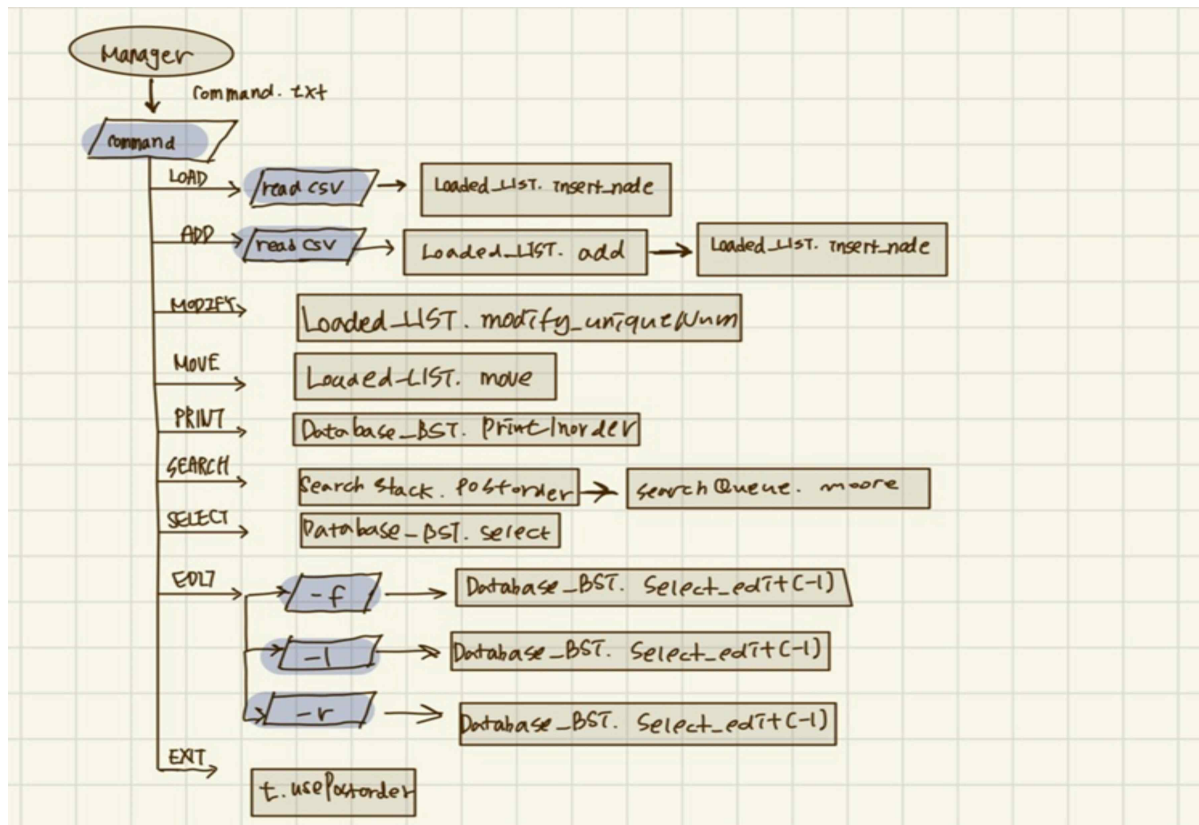 Manager
Command.txt
command
LOAD
read csv
Loaded_LIST. insert_node
ADD
read csv
Loaded_LIST. add
Loaded_LIST. insert_node
MODIFY
Loaded_LIST. modify_uniqueNum
MOVE
Loaded_LIST. move
PRINT
Database_BST. PrintInorder
SEARCH
Search Stack. Postorder
SearchQueue. moore
SELECT
Database_BST. select
EDIT
-f
Database_BST. Select_edit(-1)
-l
Database_BST. Select_edit(-1)
-r
Database_BST. Select_edit(-1)
EXIT
t.usePostorder